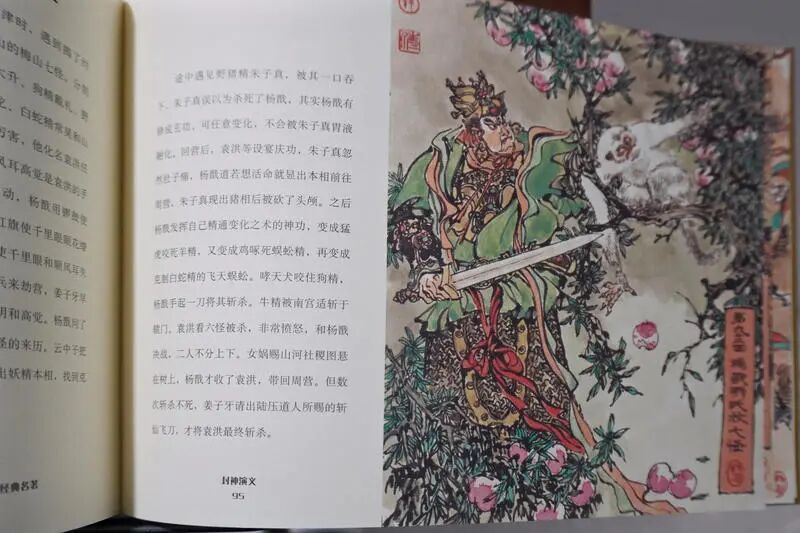 津时，遇到
山的梅山七怪。分别
大升、狗精戴礼、野
、白蛇精常昊和山
厉害，他化名袁洪
风耳高觉是袁洪的手
动，杨戬用锣鼓使
红旗使千里眼眼花缭
使千里眼和顺风耳失
兵来劫营，姜子牙早
明和高觉。杨戬问了
怪的来历。云中子把
出妖精本相，找到克
经典名著
途中遇见野猪精朱子真，被其一口吞
下，朱子真误以为杀死了杨戬，其实杨戬有
修成玄功，可任意变化，不会被朱子真胃液
融化。回营后，袁洪等设宴庆功，朱子真忽
然肚子痛，杨戬道若想活命就显出本相前往
周营，朱子真现出猪相后被砍了头颅。之后
杨戬发挥自己精通变化之术的神功，变成猛
虎咬死羊精，又变成鸡啄死蜈蚣精，再变成
克制白蛇精的飞天蜈蚣。哮天犬咬住狗精，
杨戬手起一刀将其斩杀。牛精被南宫适斩于
辕门。袁洪看六怪被杀，非常愤怒，和杨戬
决战，二人不分上下。女娲赐山河社稷图悬
在树上，杨戬才收了袁洪，带回周营。但数
次斩杀不死，姜子牙请出陆压道人所赐的斩
仙飞刀，才将袁洪最终斩杀。
封神演义
95
第九二回 杨戬哪吒收七怪